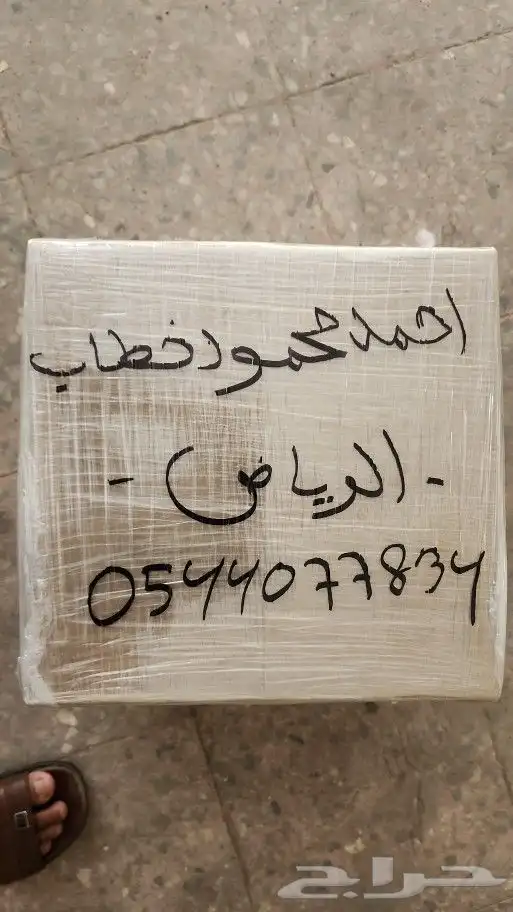 احمد محمود خطاب
- الرياض -
0544077834
حراج